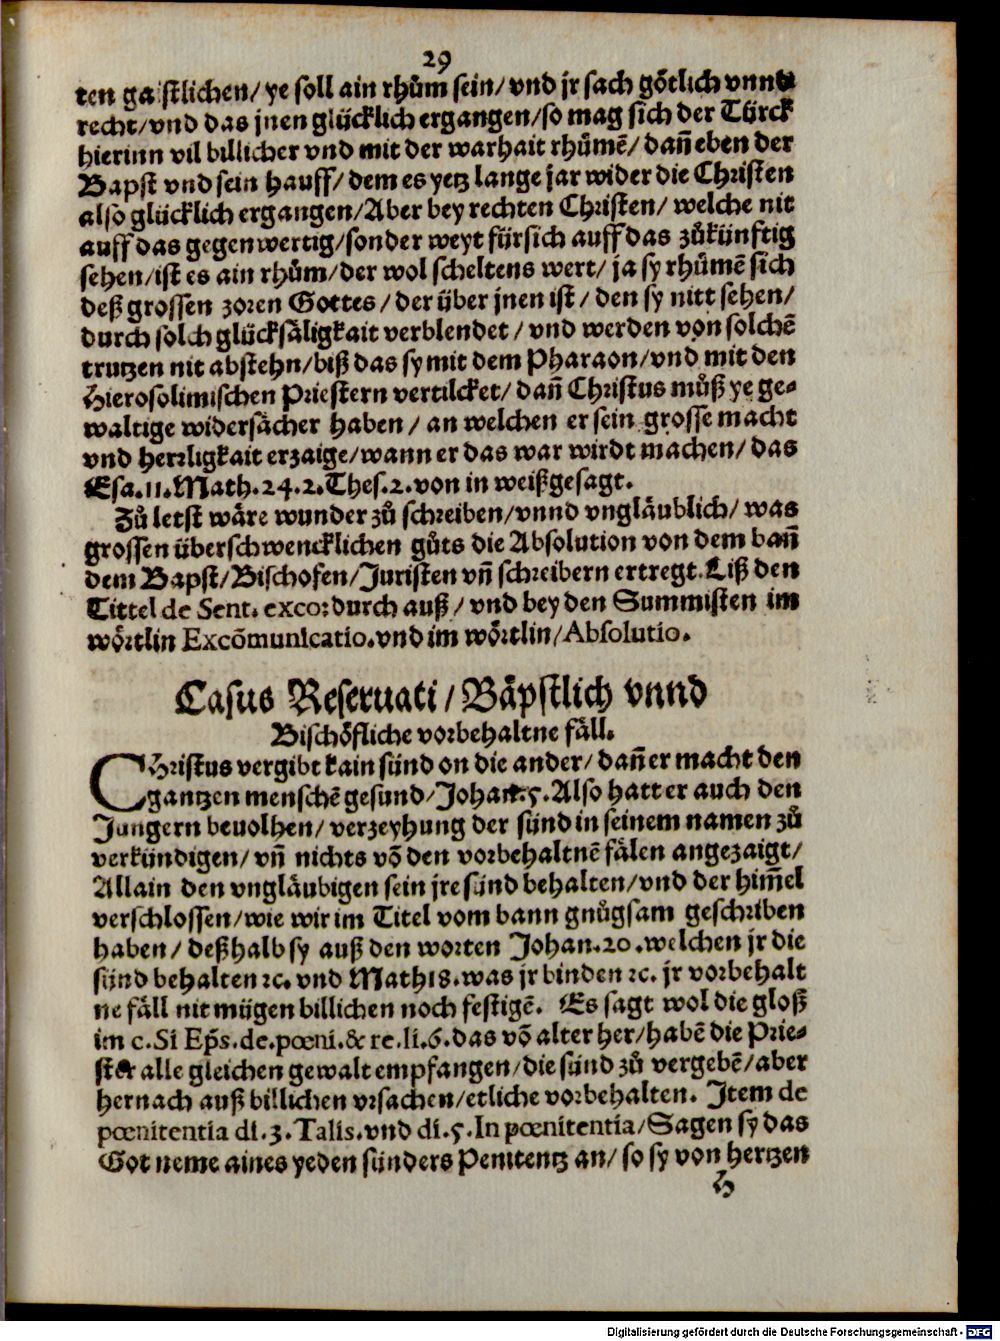 29
ten gaistlichen/ ye soll ain rhům sein/ vnd jr sach goͤtlich vnnd
recht/ vnd das jnen glücklich ergangen/ so mag sich der Türck
hierinn vil billicher vnd mit der warhait rhůmē/ dañ eben der
Bapst vnd sein hauff/ dem es yetz lange jar wider die Christen
also glücklich ergangen/ Aber bey rechten Christen/ welche nit
auff das gegenwertig/ sonder weyt fürsich auff das zůkünftig
sehen/ ist es ain rhům/ der wol scheltens wert/ ja sy rhůmē sich
deß grossen zoren Gottes/ der über jnen ist/ den sy nitt sehen/
durch solch glücksaͤligkait verblendet/ vnd werden von solchē
trutzen nit abstehn/ biß das sy mit dem Pharaon/ vnd mit den
Hierosolimischen Priestern vertilcket/ dañ Christus můß ye ge-
waltige widersaͤcher haben/ an welchen er sein grosse macht
vnd herrligkait erzaige/ wann er das war wirdt machen/ das
Esa.11. Math.24.2.Thes.2. von in weißgesagt.
Zů letst waͤre wunder zů schreiben/ vnnd vnglaͤublich/ was
grossen überschwencklichen gůts die Absolution von dem bañ
dem Bapst/ Bischofen/ Juristen vñ schreibern ertregt. Liß den
Tittel de Sent. exco: durch auß/ vnd bey den Summisten im
woͤrtlin Excōmunicatio. vnd im woͤrtlin/ Absolutio.
Casus Reseruati/ Baͤpstlich vnnd
Bischoͤfliche vorbehaltne faͤll.
CHristus vergibt kain sünd on die ander/ dañ er macht den
gantzen menschē gesund/ Johan.5. Also hatt er auch den
Jungern beuolhen/ verzeyhung der sünd in seinem namen zů
verkündigen/ vñ nichts vō den vorbehaltnē faͤlen angezaigt/
Allain den vnglaͤubigen sein jre sünd behalten/ vnd der him̄el
verschlossen/ wie wir im Titel vom bann gnůgsam geschriben
haben/ deßhalb sy auß den worten Johan.20. welchen jr die
sünd behalten ꝛc. vnd Math18. was jr binden ꝛc. jr vorbehalt
ne faͤll nit mügen billichen noch festigē. Es sagt wol die gloß
im c. Si Ep̄s. de. pœni. & re. li. 6. das vō alter her/ habē die Prie-
ster alle gleichen gewalt empfangen/ die sünd zů vergebē/ aber
hernach auß billichen vrsachen/ etliche vorbehalten. Item de
pœnitentia di. 3. Talis. vnd di. 5. In pœnitentia/ Sagen sy das
Got neme aines yeden sünders Penitentz an/ so sy von hertzen
H
Digitalisierung gefördert durch die Deutsche Forschungsgemeinschaft - DFG